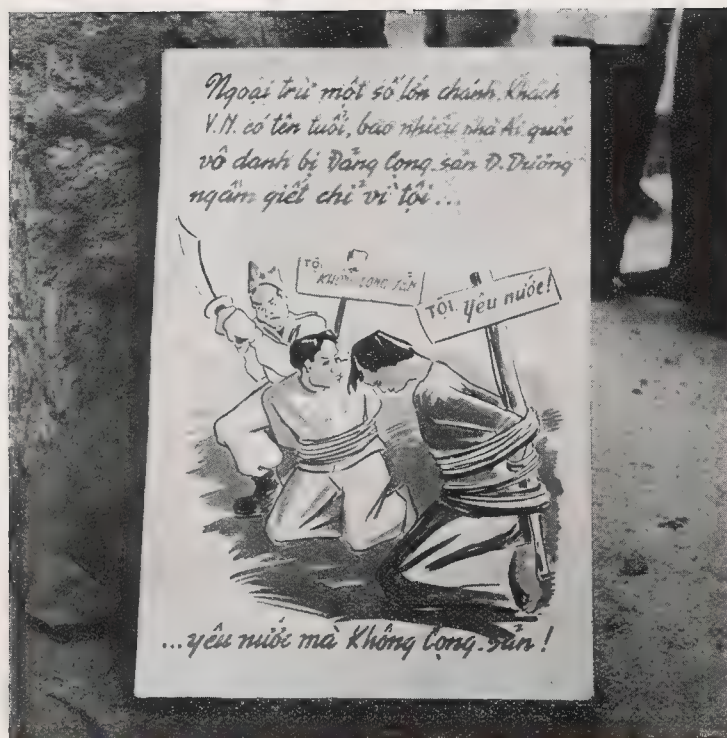 Ngoại trừ một số lớn chánh khách
V.N. có tên tuổi, bao nhiêu nhà Ái quốc
vô danh bị Đảng Cọng-sản Đ. Dương
ngấm giết chỉ vì tội...
TỘI
KHÔNG CỌNG SẢN
TỘI. Yêu nước!
...yêu nước mà Không Cọng-sản!